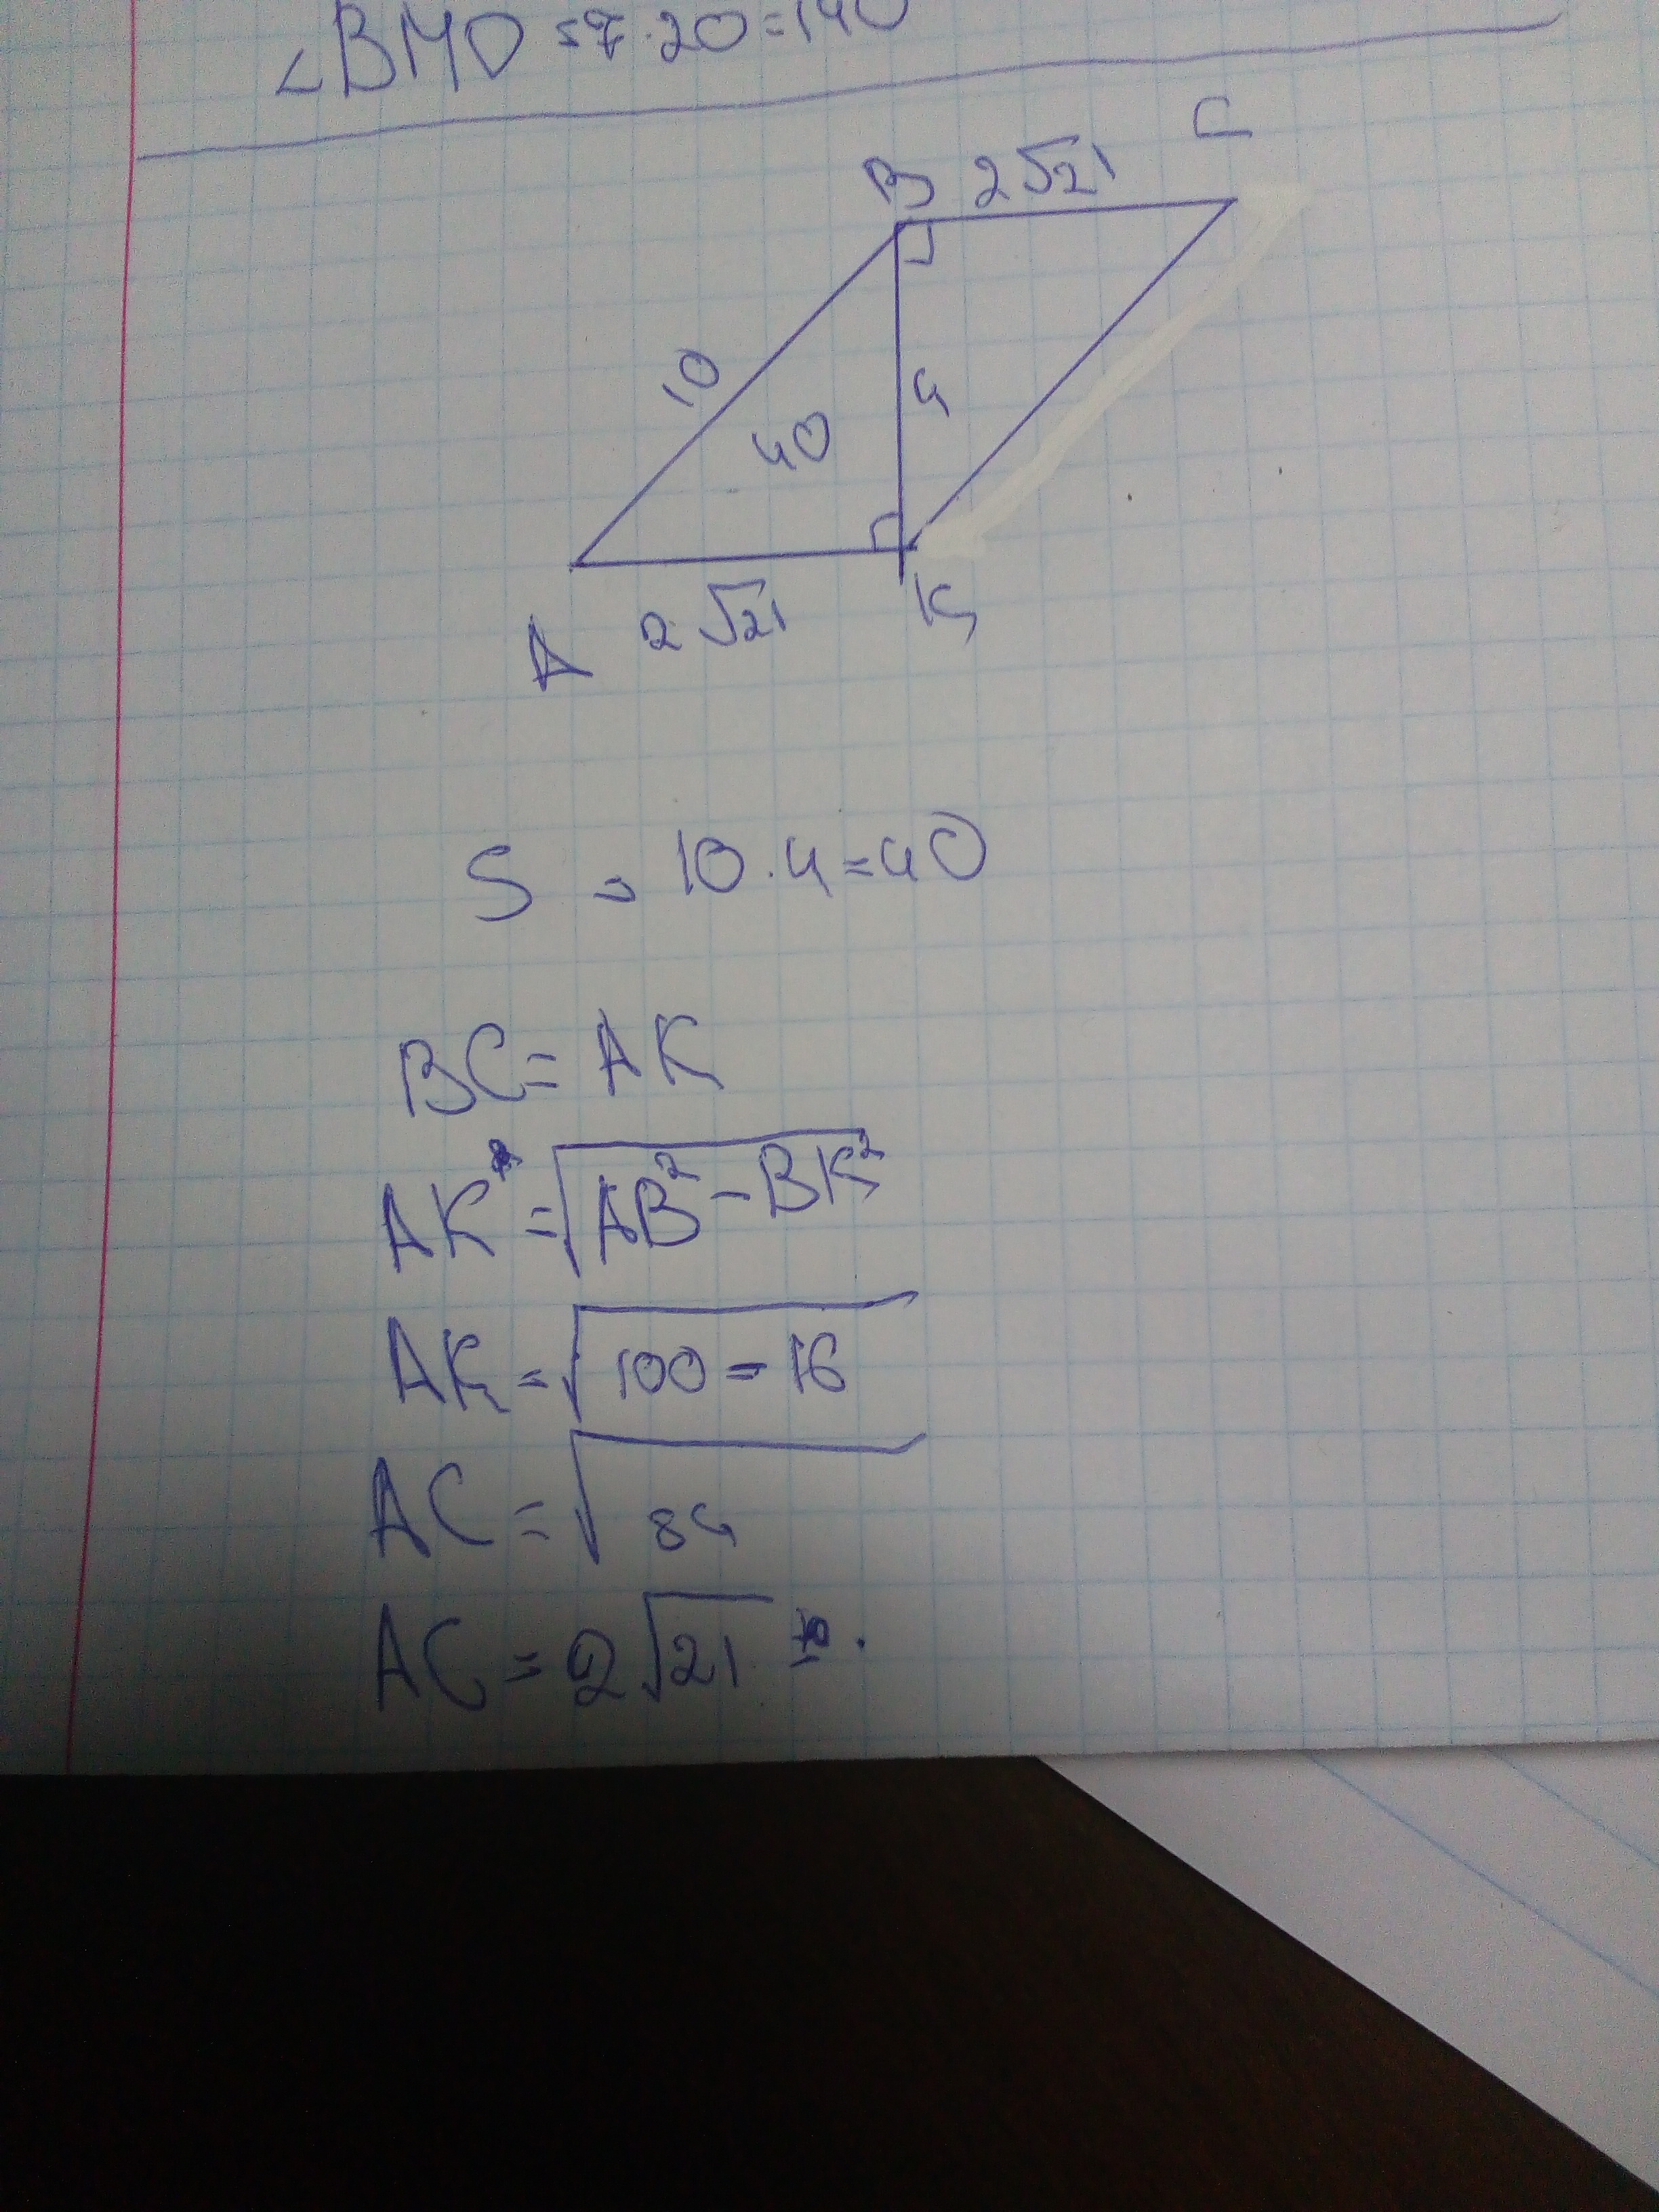 ∠BMD = 7·20=140
C
B 2√21
10
4
40
K
A 2√21
S = 10·4=40
BC= AK
AK =√AB²-BK²
AK=√100-16
AC=√84
AC=2√21